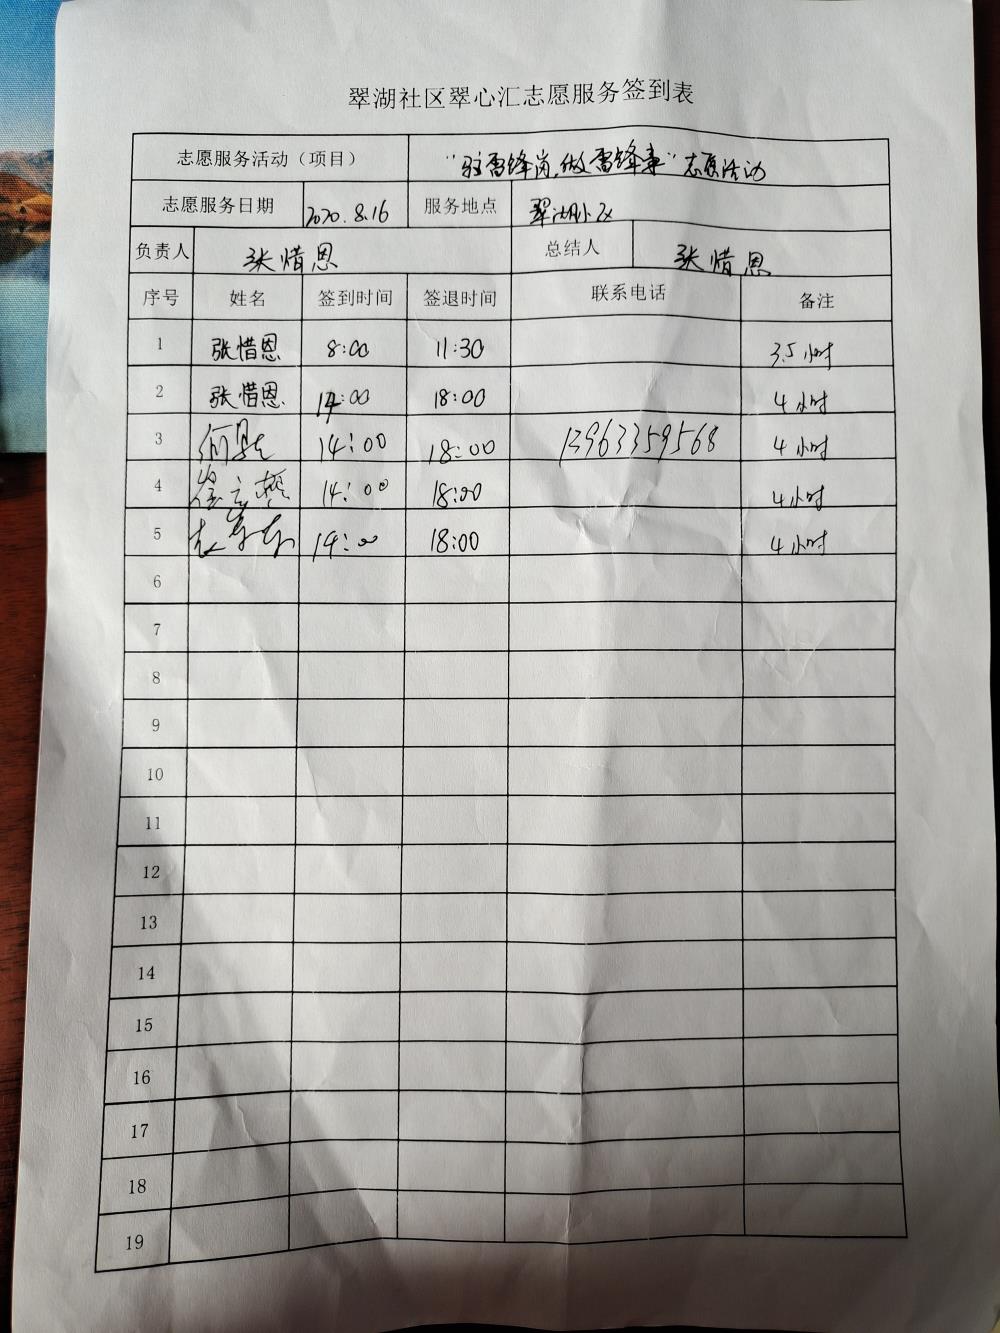 翠湖社区翠心汇志愿服务签到表
志愿服务活动（项目） “驻雷锋岗，做雷锋事”志愿活动
志愿服务日期 2020.8.16 服务地点 翠湖小区
负责人 张惜恩 总结人 张惜恩
序号 姓名 签到时间 签退时间 联系电话 备注
1 张惜恩 8:00 11:30 3.5小时
2 张惜恩 14:00 18:00 4小时
3 14:00 18:00 13963359568 4小时
4 14:00 18:00 4小时
5 14:00 18:00 4小时
6
7
8
9
10
11
12
13
14
15
16
17
18
19